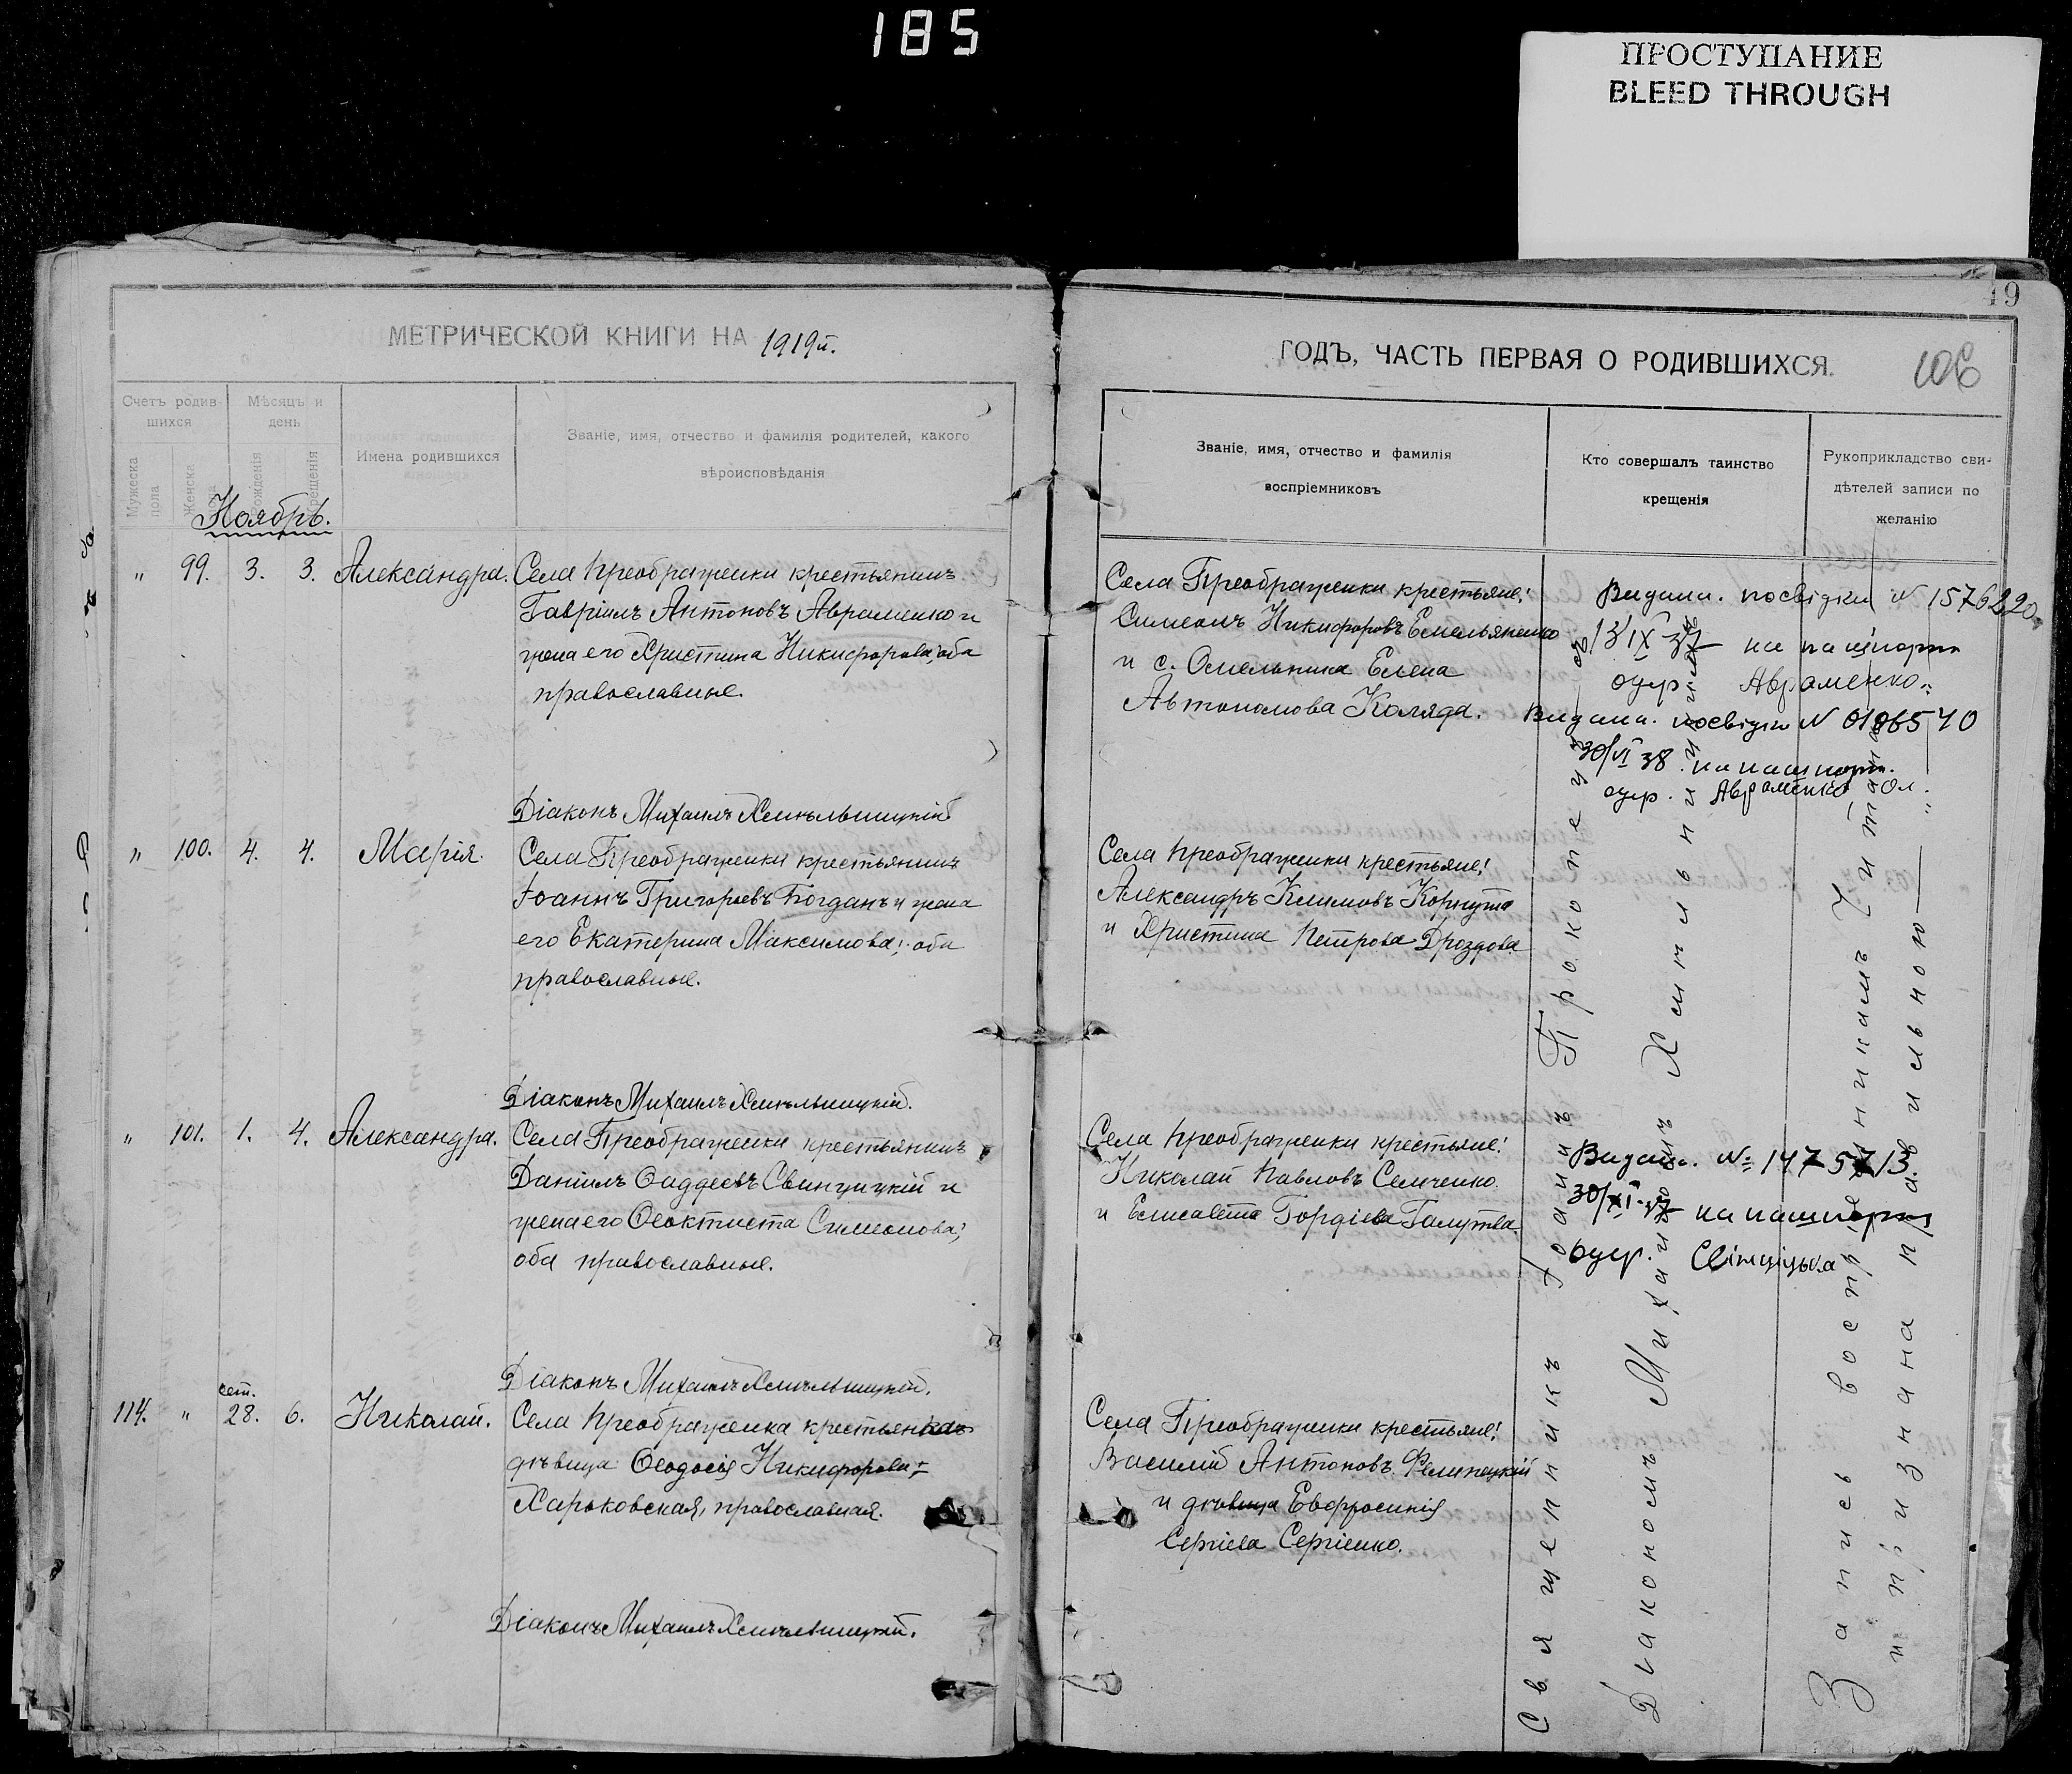 185
ПРОСТУПАНИЕ
BLEED THROUGH
МЕТРИЧЕСКОЙ КНИГИ НА 1919й.
Счетъ родив-
шихся
Мѣсяцъ и
день
Мужеска
пола
Женска
пола
Рожденія
Крещенія
Имена родившихся
Званіе, имя, отчество и фамилія родителей, какого
вѣроисповѣданія
Ноябрь.
" 99. 3. 3. Александра. Села Преображенки крестьянинъ
Гавріилъ Антоновъ Авраменко и
жена его Христина Никифорова, оба
православные.
Діаконъ Михаилъ Хмильницкій
" 100. 4. 4. Марія. Села Преображенки крестьянинъ
Іоаннъ Григорьевъ Богданъ и жена
его Екатерина Максимова; оба
православные.
Діаконъ Михаилъ Хмильницкій.
" 101. 1. 4. Александра. Села Преображенки крестьянинъ
Даніилъ Фаддеевъ Свинцицкій и
жена его Феоктиста Симеонова;
оба православные.
Діаконъ Михаилъ Хмильницкій.
сент.
114. " 28. 6. Николай. Села Преображенка крестьянка
дѣвица Феодосія Никифорова
Харьковская, православная.
Діаконъ Михаилъ Хмильницкій.
19
106
ГОДЪ, ЧАСТЬ ПЕРВАЯ О РОДИВШИХСЯ.
Званіе, имя, отчество и фамилія
воспріемниковъ
Кто совершалъ таинство
крещенія
Рукоприкладство сви-
дѣтелей записи по
желанію
Села Преображенки крестьяне:
Симеонъ Никифоровъ Емельяненко
и с. Омельника Елена
Автономова Коляда.
Видана. посвідки N 1576220
13/IX 37 на пашпорт
одер. Авраменко
Видана. посвідки N 0186570
30/VI 38. на пашпорт.
одер. Авраменко Ол.
Села Преображенки крестьяне:
Александръ Климовъ Корнута
и Христина Петрова Дроздова
Села Преображенки крестьяне:
Николай Павловъ Семченко
и Елисавета Гордіева Галутва.
Видан. № 1475713.
30/XI-37 на пашпорт
одер. Свінціцька
Села Преображенки крестьяне:
Василій Антоновъ Филипецкій
и дѣвица Евфросинія
Сергіева Сергіенко.
Священникъ Іоаннъ Прокопецъ съ
Діакономъ Михаиломъ Хмильницкимъ
Запись воспріемникамъ читана
и признана правильною